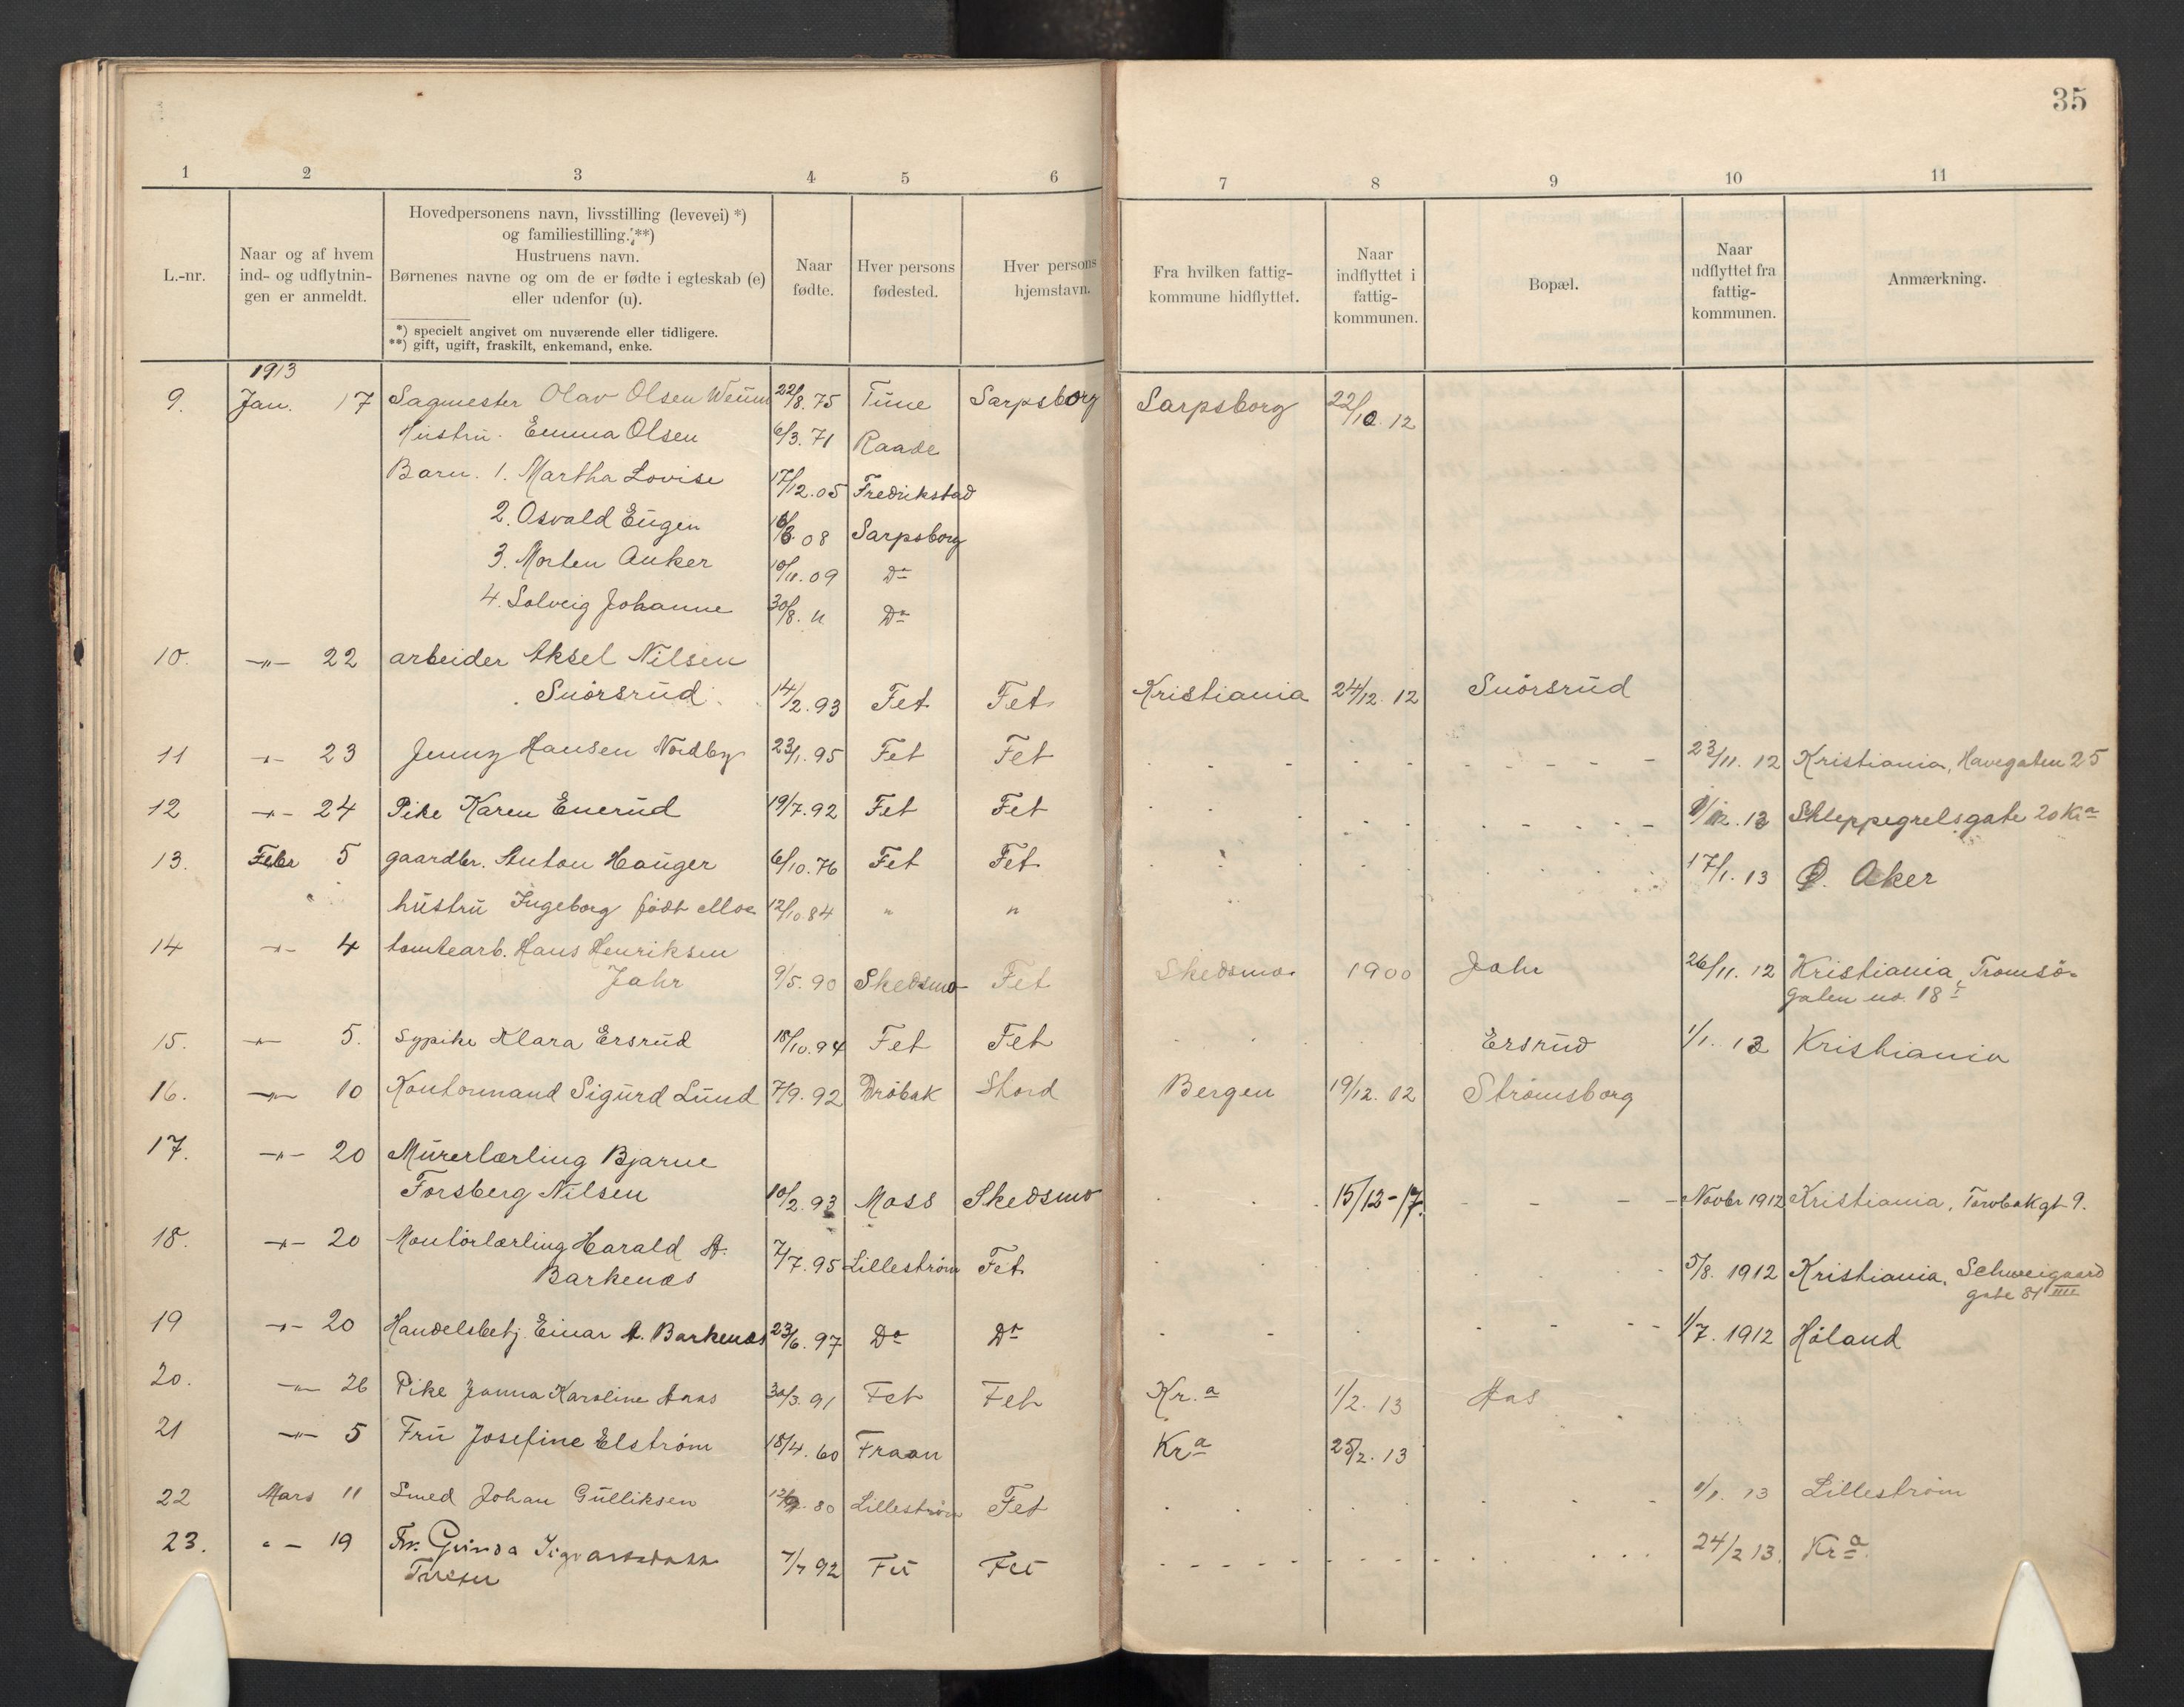 35
1 2 3 4 5 6 7 8 9 10 11
L.-nr.
Naar og af hvem
ind- og udflytnin-
gen er anmeldt.
Hovedpersonens navn, livsstilling (levevei) *)
og familiestilling. **)
Hustruens navn.
Børnenes navne og om de er fødte i egteskab (e)
eller udenfor (u).
*) specielt angivet om nuværende eller tidligere.
**) gift, ugift, fraskilt, enkemand, enke.
Naar
fødte.
Hver persons
fødested.
Hver persons
hjemstavn.
Fra hvilken fattig-
kommune hidflyttet.
Naar
indflyttet i
fattig-
kommunen.
Bopæl.
Naar
udflyttet fra
fattig-
kommunen.
Anmærkning.
1913
9. Jan. 17 Sagmester Olav Olsen Weum 22/8.75 Tune Sarpsborg Sarpsborg 22/10.12
Hustru. Emma Olsen 6/3.71 Raade
Barn. 1. Martha Lovise 17/12.05 Fredrikstad
2. Osvald Eugen 08 Sarpsborg
3. Morten Anker 10/11.09 Do
4. Solveig Johanne 30/8.11 Do
10. -"- 22 arbeider Aksel Nilsen
Snörsrud 14/2.93 Fet Fet Kristiania 24/12.12 Snörsrud
11 -"- 23 Jenny Hansen Nordby 23/1.95 Fet Fet 23/11.12 Kristiania, Havegaten 25
12 -"- 24 Pike Karen Enerud 19/7.92 Fet Fet Schleppegrelsgate 20 Kra
13. Febr 5 gaardbr. Anton Hauger 6/10.76 Fet Fet 17/1.13 Ø. Aker
hustru Ingeborg født Moe 12/10.84 " "
14 -"- 4 tomtearb. Hans Henriksen
Jahr 9/5.90 Skedsmo Fet Skedsmo 1900 Jahr 26/11.12 Kristiania, Tromsö-
gaten no. 18 I
15. -"- 5. Sypike Klara Ersrud 18/10.94 Fet Fet Ersrud 1/1.13 Kristiania
16. -"- 10 Kontormand Sigurd Lund 7/9.92 Dröbak Stord Bergen 19/12.12 Strömsborg
17. -"- 20 Murerlærling Bjarne
Forsberg Nilsen 10/2.93 Moss Skedsmo 15/12-17. Novbr 1912 Kristiania, Torvbakgt 9.
18. -"- 20 Montörlærling Harald A.
Barkenæs 7/7.95 Lilleström Fet 5/8.1912 Kristiania, Schweigaard
gate 81 IIII
19 -"- 20 Handelsbetj. Einar A. Barkenæs 23/6.97 Do Do 1/7.1912 Höland
20. -"- 26 Pike Janna Karoline Aaas 30/3.91 Fet Fet Kr.a 1/2.13 Aas
21 -"- 5 Fru Josefine Elström 18/4.60 Fraan Kra 25/2.13
22 Mars 11 Smed Johan Gulliksen 80 Lilleström Fet 1/1.13 Lilleström
23. " - 19 Frk. 92 Fet Fet 24/2 13. Kra.